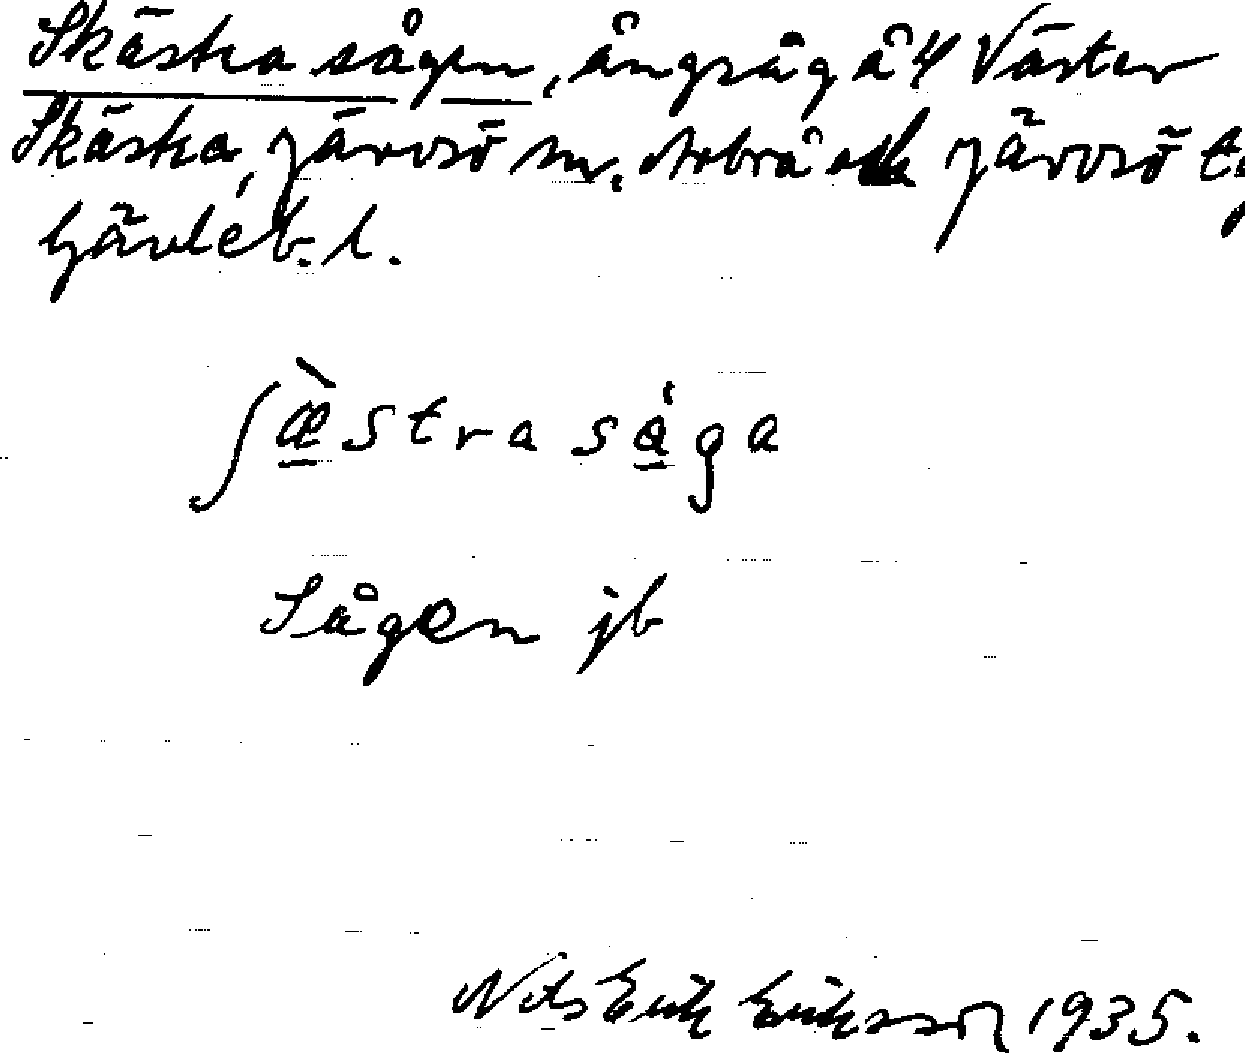 Skästra sågen, ångsåg å 4 Väster
Skästra, Järvsö sn. Arbrå och Järvsö t:g
Gävleb. l.
ʃæ̀stra såga
Sågen jb
Nils Erik Eriksson 1935.